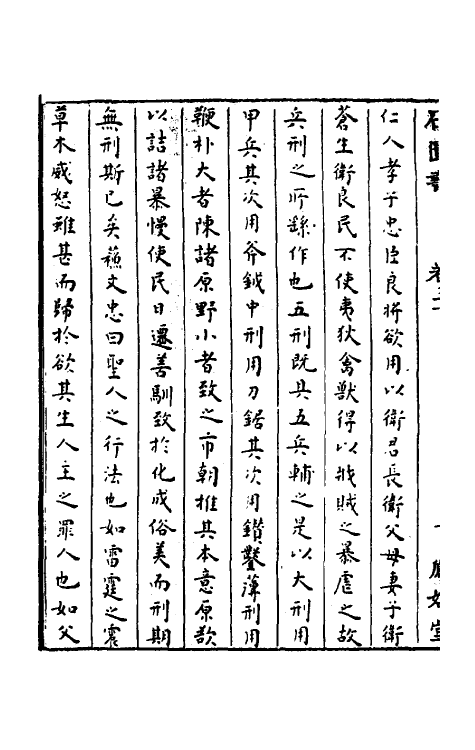 石匱書　卷三
仁人孝子忠臣良將欲用以衛君長衛父母妻子衛
蒼生衛良民不使夷狄禽獸得以戕賊之暴虐之故
兵刑之所繇作也五刑既具五兵輔之是以大刑用
甲兵其次用斧鉞中刑用刀鋸其次用鑽鑿薄刑用
鞭朴大者陳諸原野小者致之市朝推其本意原欲
以詰諸暴慢使民日遷善馴致於化成俗美而刑期
無刑斯已矣蘇文忠曰聖人之行法也如雷霆之震
草木威怒雖甚而歸於欲其生人主之罪人也如父